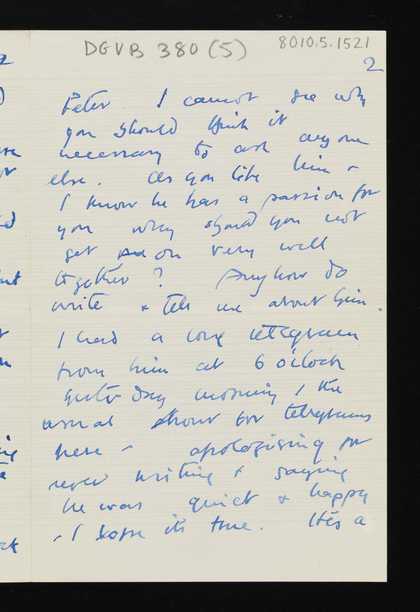 DGVB 380 (5)
8010.5.1521
2
Peter. I cannot see why
you should think it
necessary to ask any one
else. As you like him &
I know he has a passion for
you why should you not
get on very well
together? Anyhow do
write & tell me about him.
I had a long telegram
from him at 6 o'clock
yesterday morning, the
usual hour for telegrams
here – apologising for
never writing & saying
he was quiet & happy
– I hope it's true. It's a